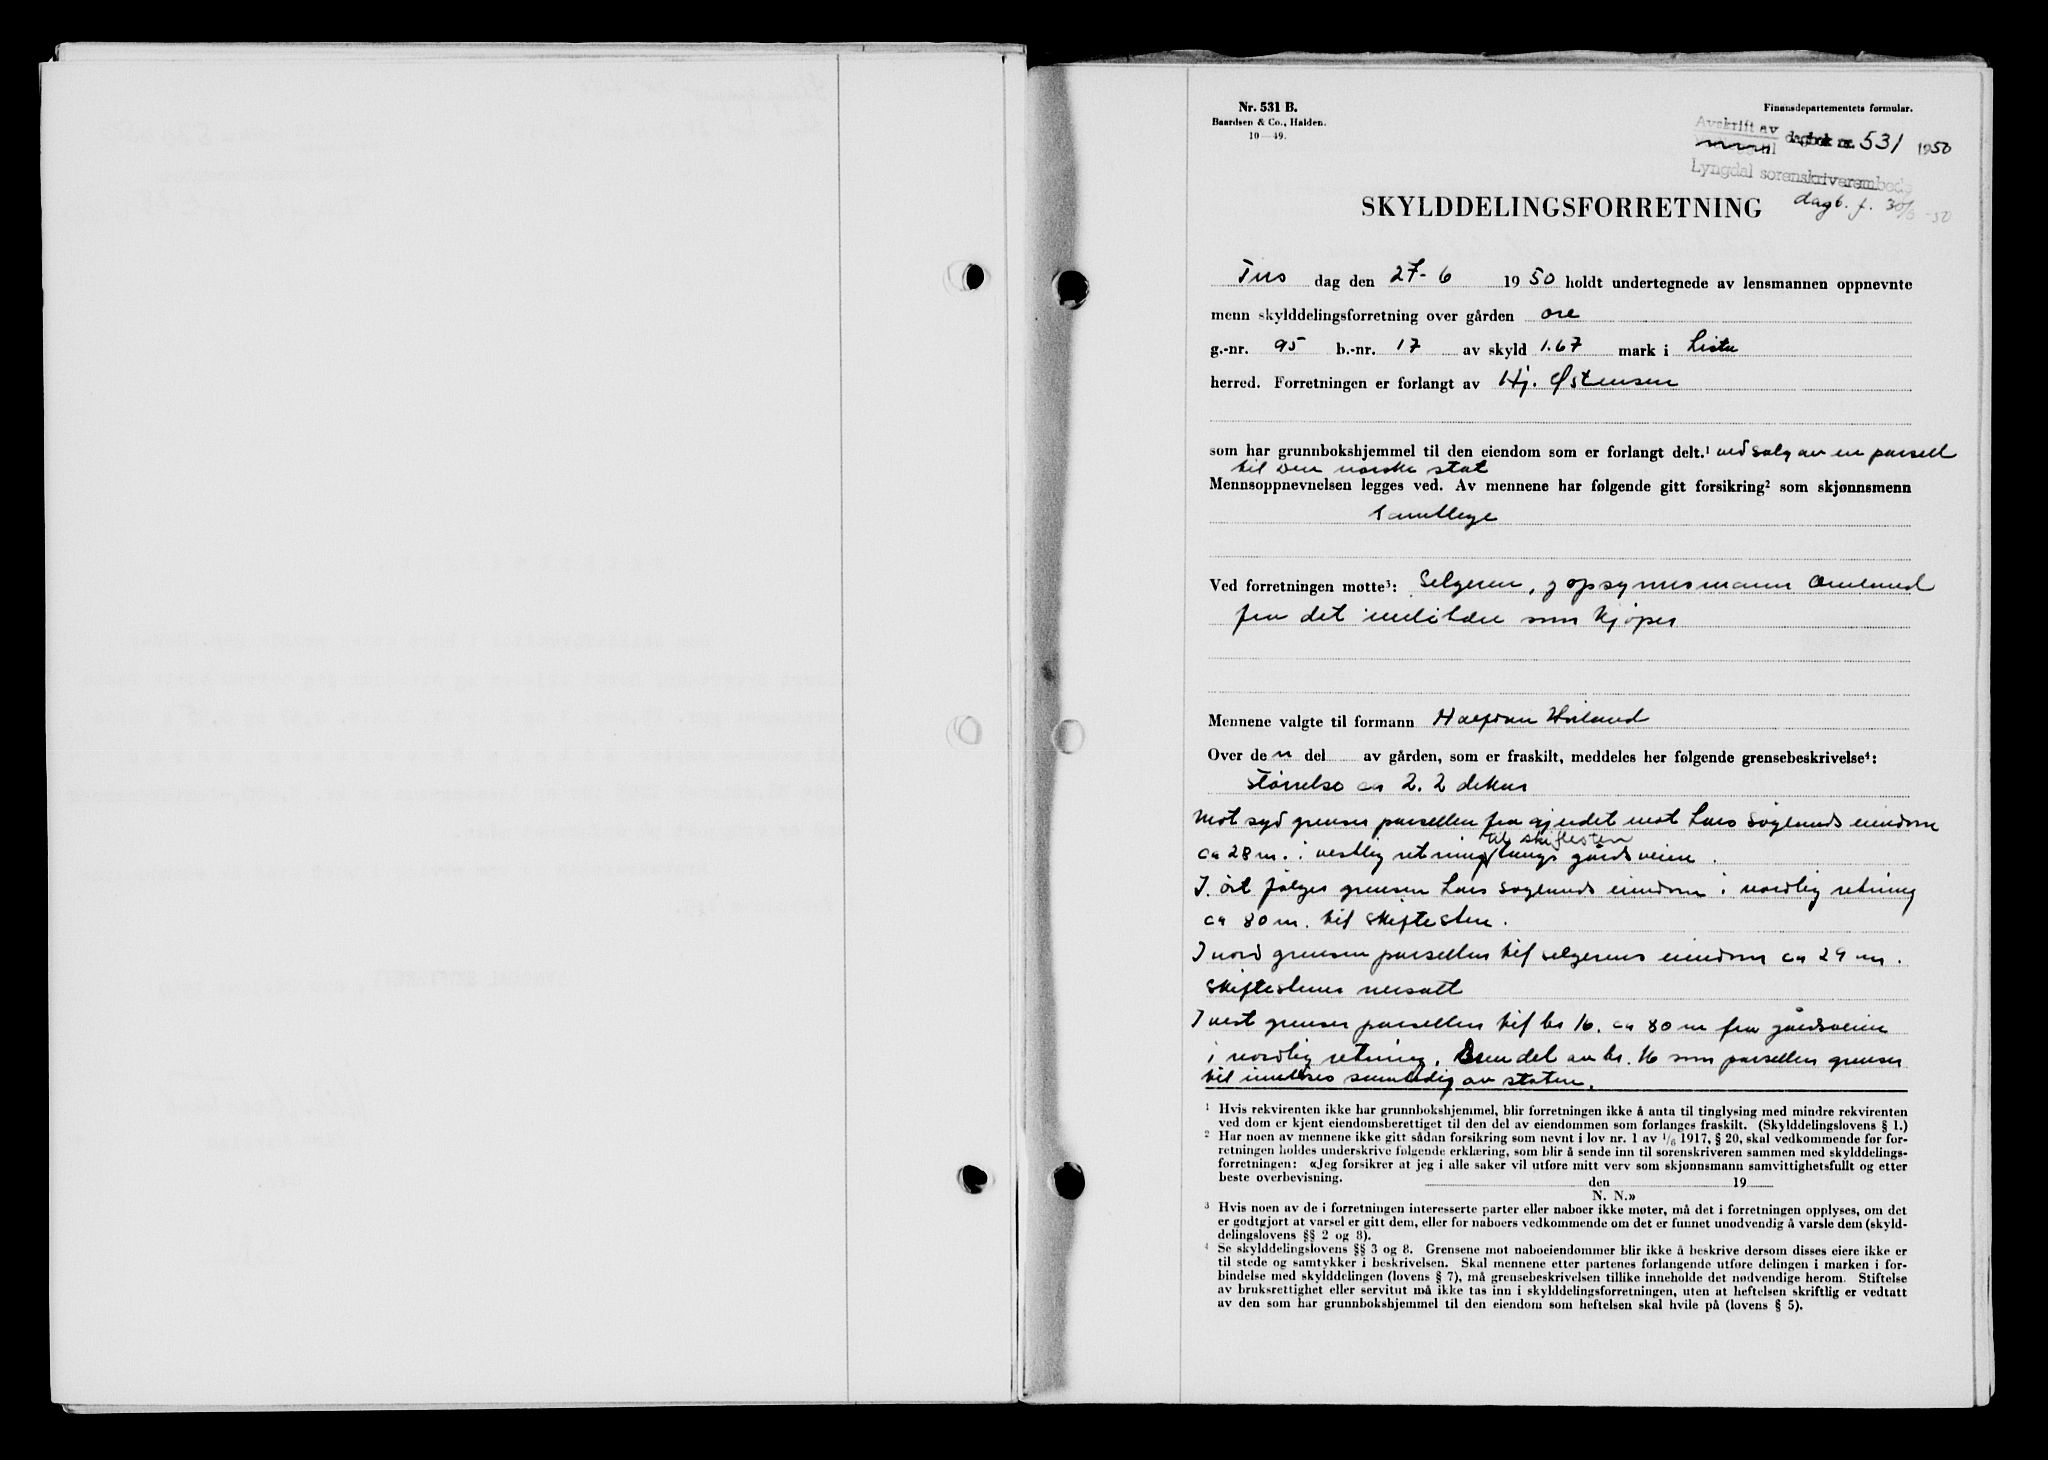 Nr. 531 B.
Baardsen & Co., Halden.
10 — 49.
Finansdepartementets formular.
Avskrift av dagbok nr. 531 1950
Lyngdal sorenskriverembede
dagb. f. 30/6 -50
SKYLDDELINGSFORRETNING
Tirs dag den 27-6 1950 holdt undertegnede av lensmannen oppnevnte
menn skylddelingsforretning over gården ore
g.-nr. 95 b.-nr. 17 av skyld 1.67 mark i Lista
herred. Forretningen er forlangt av Hj. Østensen
som har grunnbokshjemmel til den eiendom som er forlangt delt.¹ ved salg av en parsell
til Den norske stat
Mennsoppnevnelsen legges ved. Av mennene har følgende gitt forsikring² som skjønnsmenn
samtlige
Ved forretningen møtte³: Selgeren, og opsynsmann Omlund
fra det militære som kjøper
Mennene valgte til formann Halfdan Hoiland
Over de n del av gården, som er fraskilt, meddeles her følgende grensebeskrivelse⁴:
Størrelse ca 2.2 dekar
Mot syd grenser parsellen fra gjerdet mot Lars Søylands eiendom
til skiftesten
ca 28 m. i vestlig retning langs gårdsveien.
I øst følger grensen Lars Søylands eiendom i nordlig retning
ca 80 m. til skiftesten.
I nord grenser parsellen til selgerens eiendom ca 29 m.
skiftestener nersatt
I vest grenser parsellen til br 16. ca 80 m fra gårdsveien
i nordlig retning. Den del av br. 16 som parsellen grenser
til innløses samtidig av staten.
¹ Hvis rekvirenten ikke har grunnbokshjemmel, blir forretningen ikke å anta til tinglysing med mindre rekvirenten
ved dom er kjent eiendomsberettiget til den del av eiendommen som forlanges fraskilt. (Skylddelingslovens § 1.)
² Har noen av mennene ikke gitt sådan forsikring som nevnt i lov nr. 1 av ¹/₆ 1917, § 20, skal vedkommende før for-
retningen holdes underskrive følgende erklæring, som blir å sende inn til sorenskriveren sammen med skylddelings-
forretningen: «Jeg forsikrer at jeg i alle saker vil utføre mitt verv som skjønnsmann samvittighetsfullt og etter
beste overbevisning. den 19
N. N.»
³ Hvis noen av de i forretningen interesserte parter eller naboer ikke møter, må det i forretningen opplyses, om det
er godtgjort at varsel er gitt dem, eller for naboers vedkommende om det er funnet unødvendig å varsle dem (skyld-
delingslovens §§ 2 og 8).
⁴ Se skylddelingslovens §§ 3 og 8. Grensene mot naboeiendommer blir ikke å beskrive dersom disses eiere ikke er
til stede og samtykker i beskrivelsen. Skal mennene etter partenes forlangende utføre delingen i marken i for-
bindelse med skylddelingen (lovens § 7), må grensebeskrivelsen tillike inneholde det nødvendige herom. Stiftelse
av bruksrettighet eller servitut må ikke tas inn i skylddelingsforretningen, uten at heftelsen skriftlig er vedtatt
av den som har grunnbokshjemmel til den eiendom som heftelsen skal hvile på (lovens § 5).